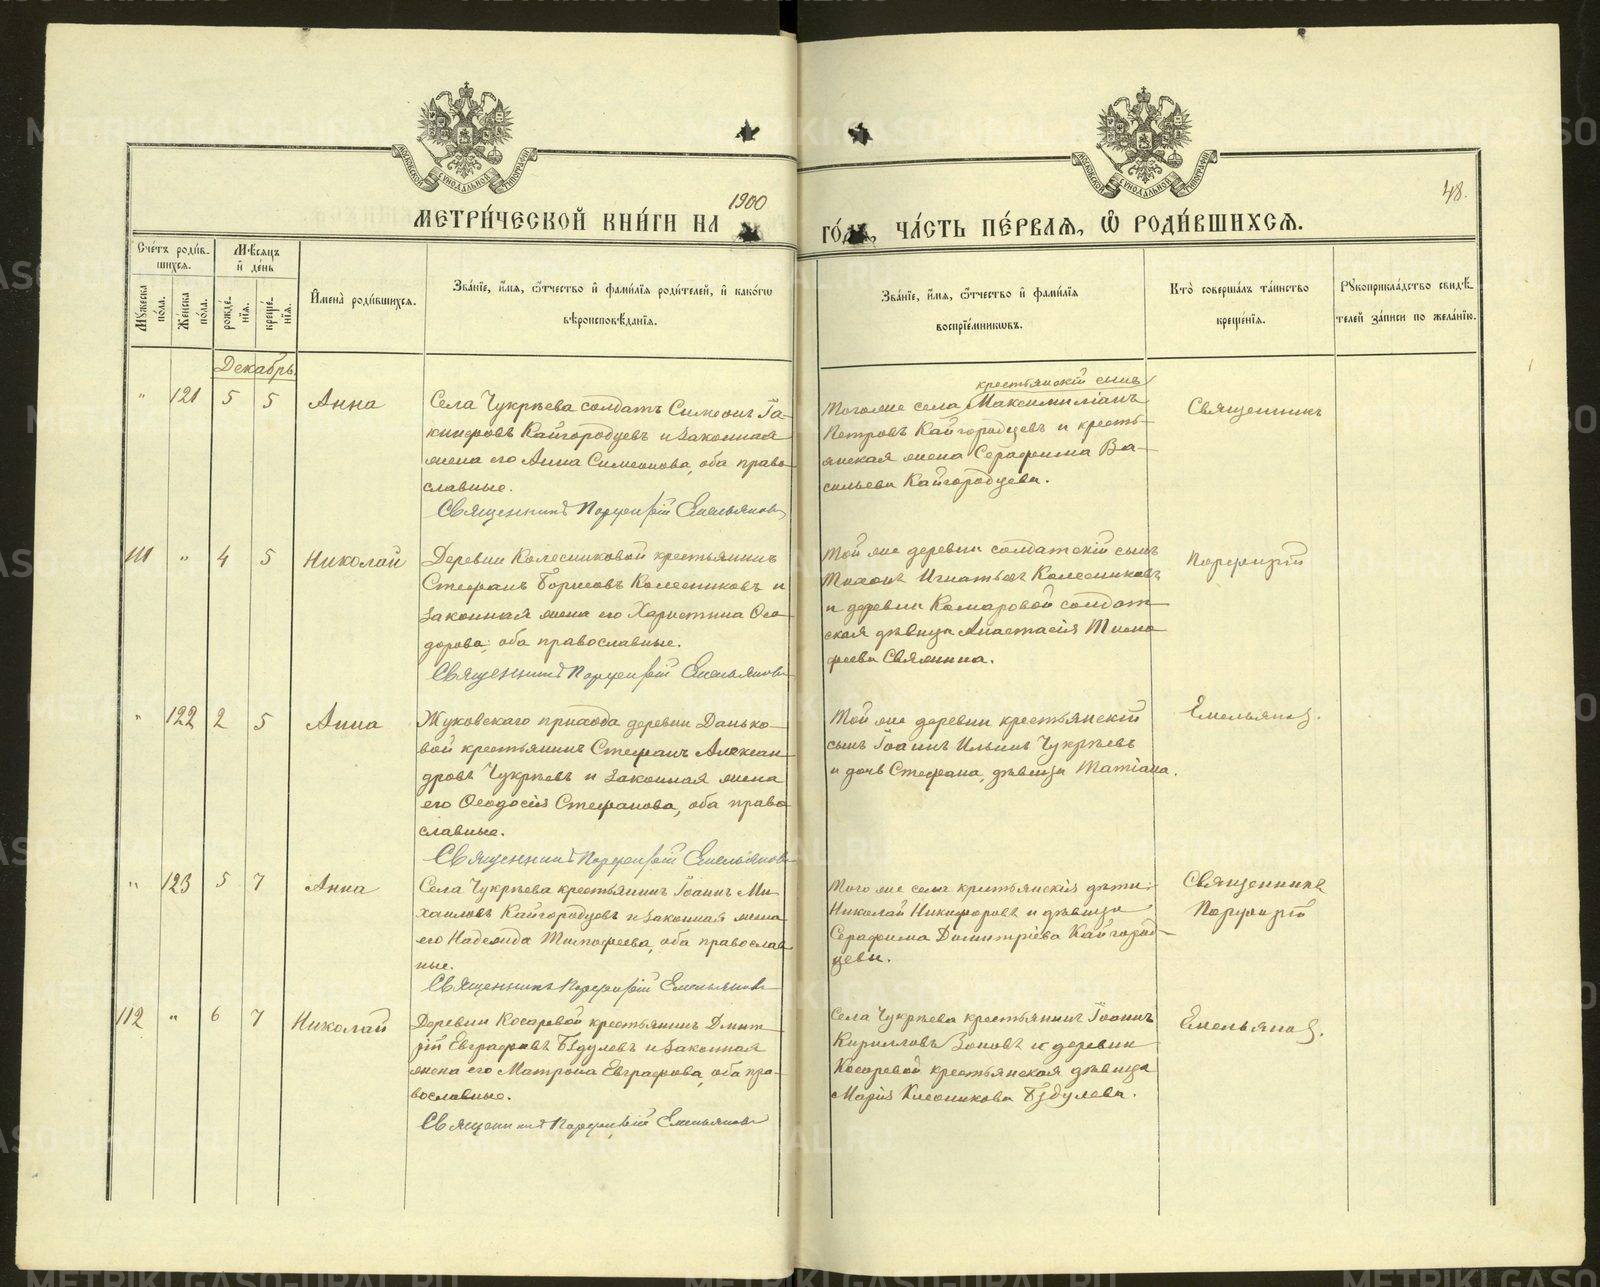 48.
1900
МЕТРИ́ЧЕСКОЙ КНИ́ГИ НА
ГО́ДЪ, ЧА́СТЬ ПЕ́РВАѦ, Ѽ РОДИ́ВШИХСѦ.
Сче́тъ роди́в-
шихсѧ.
Мꙋжеска по́ла.
Же́нска по́ла.
Мѣ́сѧцъ
и҆ де́нь
рожде́нїѧ.
креще́нїѧ.
И҆мена̀ роди́вшихсѧ.
Зва́нїе, и҆́мѧ, ѻ҆́тчество и҆ фами́лїѧ роди́телей, и҆ како́гѡ
вѣроисповѣ́данїѧ.
Зва́нїе, и҆́мѧ, ѻ҆́тчество и҆ фами́лїѧ
воспрїе́мникѡвъ.
Кто̀ соверша́лъ та́инство
креще́нїѧ.
Рꙋкоприкла́дство свидѣ́-
телей за́писи по жела́нїю.
Декабрь.
" 121 5 5 Анна
Села Чукрѣева солдатъ Симеонъ Іа-
кинфовъ Кайгородцевъ и законная
жена его Анна Симеонова, оба право
славные.
Священникъ Порфирій Емельяновъ
крестьянскій сынъ
Тогоже села Максимиліанъ
Петровъ Кайгородцевъ и кресть-
янская жена Серафима Ва-
сильева Кайгородцева.
Священникъ
111 " 4 5 Николай
Деревни Колесниковой крестьянинъ
Стефанъ Борисовъ Колесниковъ и
законная жена его Харистина Ѳео-
дорова, оба православные.
Священникъ Порфирій Емельяновъ
Той же деревни солдатскій сынъ
Тихонъ Игнатьевъ Колесниковъ
и деревни Комаровой солдат-
ская дѣвица Анастасія Тимо
феева Свяжина.
Порфирій
" 122 2 5 Анна
Жуковскаго прихода деревни Данько-
вой крестьянинъ Стефанъ Алексан-
дровъ Чукрѣевъ и законная жена
его Ѳеодосія Стефанова, оба право
славные.
Священникъ Порфирій Емельяновъ
Той же деревни крестьянскій
сынъ Іоаннъ Ильинъ Чукрѣевъ
и дочь Стефана, дѣвица Татіана.
Емельяновъ.
" 123 5 7 Анна
Села Чукрѣева крестьянинъ Іоаннъ Ми-
хаиловъ Кайгородцевъ и законная жена
его Надежда Тимофеева, оба православ
ные.
Священникъ Порфирій Емельяновъ
Того же села крестьянскія дѣти:
Николай Никифоровъ и дѣвица
Серафима Димитріева Кайгород-
цевы.
Священникъ
Порфирій
112 " 6 7 Николай
Деревни Косаревой крестьянинъ Димит-
рій Евграфовъ Бздулевъ и законная
жена его Матрона Евграфова, оба пра-
вославные.
Священникъ Порфирій Емельяновъ
Села Чукрѣева крестьянинъ Іоаннъ
Кирилловъ Зоновъ и деревни
Косаревой крестьянская дѣвица
Марія Бздулева.
Емельяновъ.